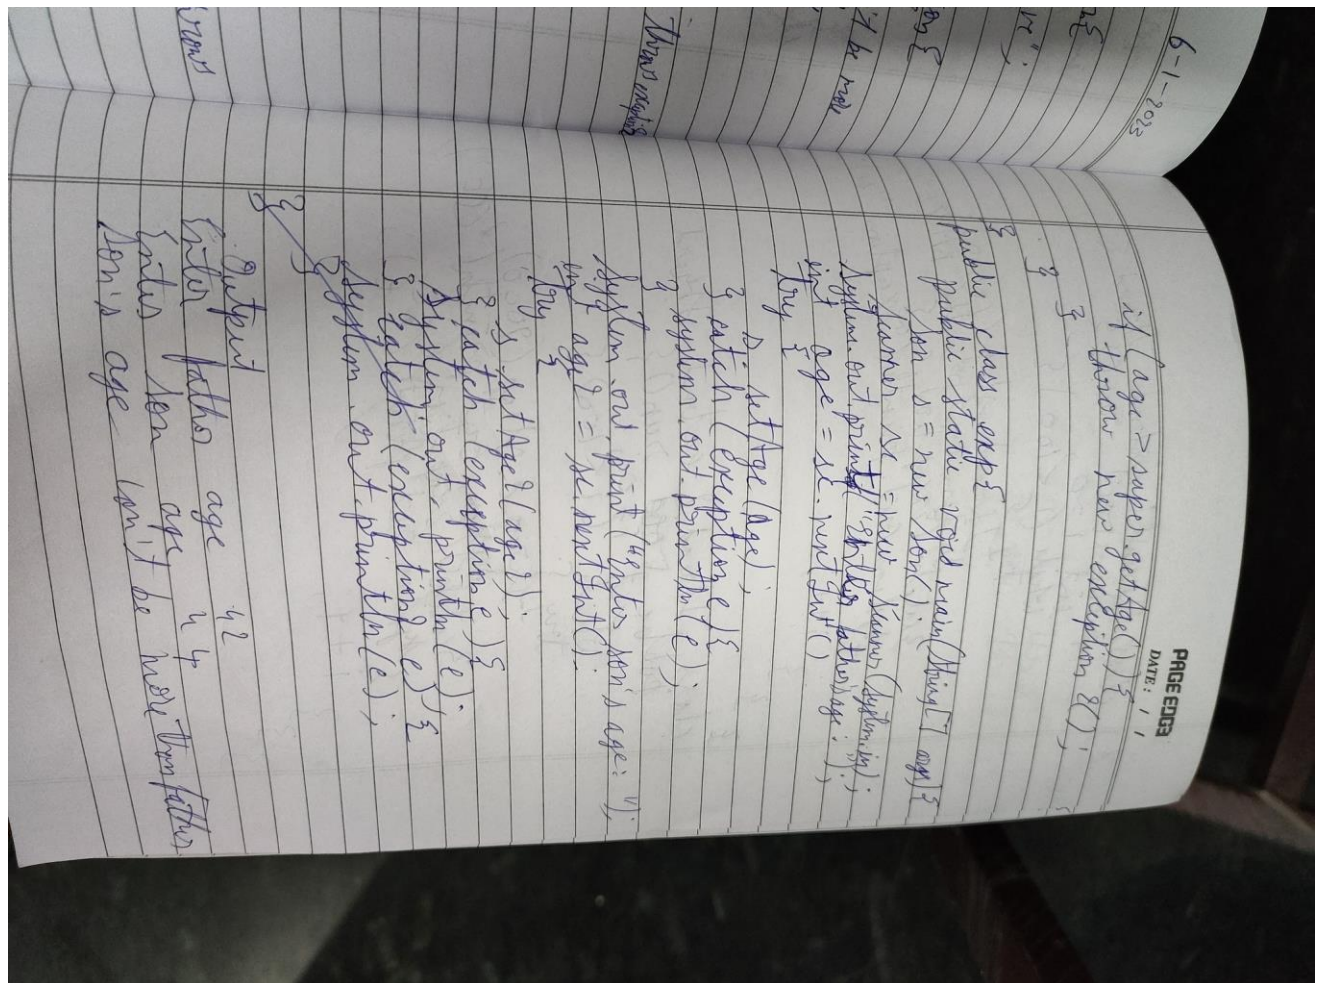 6-1-2023
it be more
throws exception
PAGE EDGE
DATE: / /
if (age > super.getAge()) {
throw new exception 2();
}
}
}
public class exp{
public static void main(String[] args){
Son s = new Son();
Scanner sc = new Scanner(System.in);
System.out.print("Enter father's age: ");
int age = sc.nextInt()
try {
s.setAge(age);
} catch (exception e){
system.out.println(e);
}
System.out.print("Enter son's age: ");
int age2 = sc.nextInt();
try {
s.setAge2(age2);
} catch (exception e){
System.out.println(e);
} catch (exception2 e){
System.out.println(e);
}
}
Output
Enter father age 42
Enter son age 44
Son's age can't be more than father